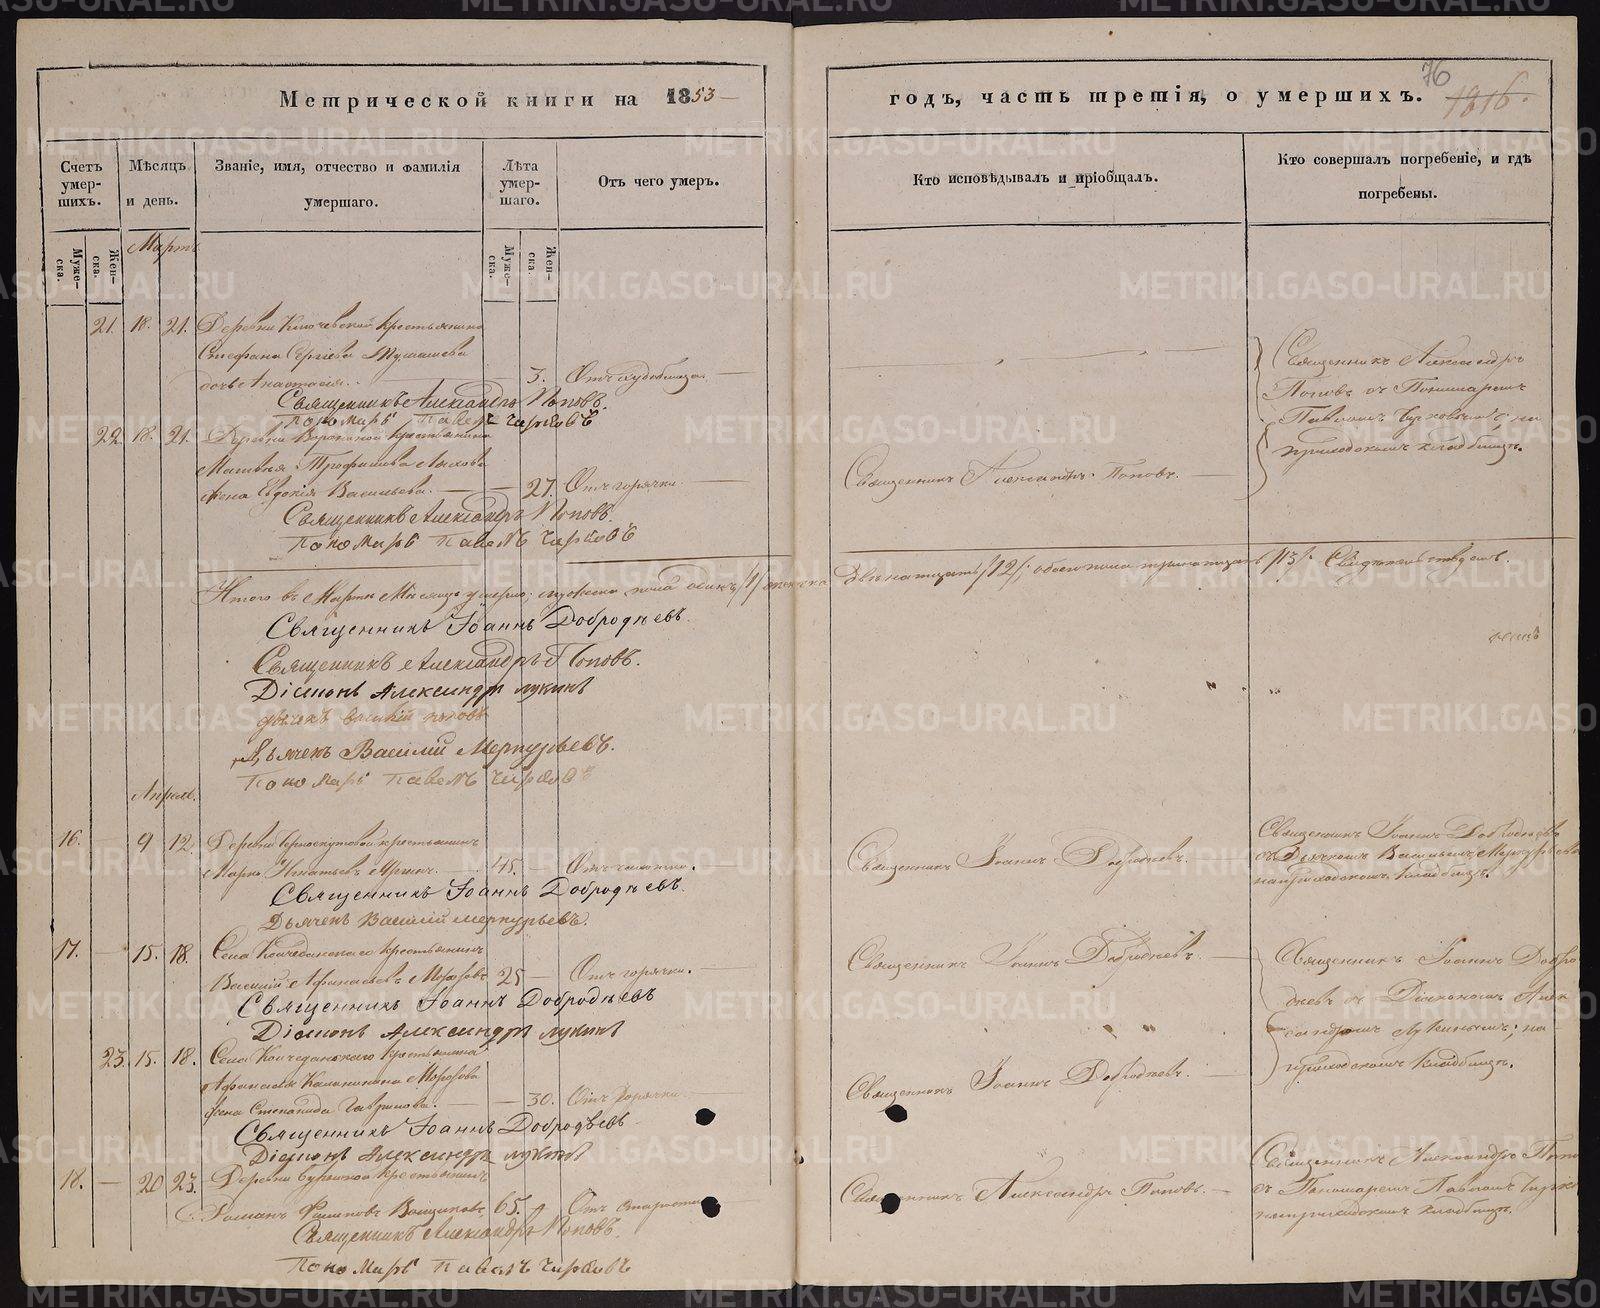 Метрической книги на 1853
годъ, часть третія, о умершихъ.
76
1816.
Счетъ умер-шихъ.
Мѣсяцъ и день.
Званіе, имя, отчество и фамилія умершаго.
Лѣта умер-шаго.
Отъ чего умеръ.
Кто исповѣдывалъ и пріобщалъ.
Кто совершалъ погребеніе, и гдѣ погребены.
Муже-ска.
Жен-ска.
Муже-ска.
Жен-ска.
Мартъ
21. 18. 21. Деревни Ключевской крестьянина
Стефана Сергіева
дочь Анастасія. 3. Отъ
Священникъ Александръ Поповъ.
Пономарь Павелъ
Священникъ Александръ
Поповъ съ Пономаремъ
Павломъ на
приходскомъ кладбищѣ.
22. 18. 21. Деревни крестьянина
Трофимова
жена Евдокія Васильева. 27. Отъ горячки.
Священникъ Александръ Поповъ.
Священникъ Александръ Поповъ.
Пономарь Павелъ
Итого въ Мартѣ Мѣсяцѣ умерло; мужеска пола одинъ /1/ женска двѣнадцать /12/; обоего пола тринадцать /13/. Свидѣтельствуемъ.
Священникъ Іоаннъ Добродѣевъ.
Священникъ Александръ Поповъ.
Діаконъ Александръ Лукинъ
дьячекъ Василій Поповъ
Дьячекъ Василій Меркурьевъ.
Пономарь Павелъ
Апрель.
16. 9 12. Деревни крестьянинъ
Марко Игнатьевъ 45. Отъ чахотки.
Священникъ Іоаннъ Добродѣевъ.
Дьячекъ Василій Меркурьевъ.
Священникъ Іоаннъ Добродѣевъ.
Священникъ Іоаннъ Добродѣевъ
съ Дьячкомъ Васильемъ Меркурьевымъ
на приходскомъ кладбищѣ.
17. 15. 18. Села Колчеданскаго крестьянинъ
Василій Афанасьевъ Морозовъ 25 Отъ горячки.
Священникъ Іоаннъ Добродѣевъ
Діаконъ Александръ Лукинъ
Священникъ Іоаннъ Добродѣевъ.
Священникъ Іоаннъ Добро
дѣевъ съ Діакономъ Алек
сандромъ Лукинымъ; на
приходскомъ кладбищѣ.
23. 15. 18. Села Колчеданскаго крестьянина
Афанасія Калинина Морозова
жена Степанида Гаврилова. 30. Отъ горячки.
Священникъ Іоаннъ Добродѣевъ
Діаконъ Александръ Лукинъ
Священникъ Іоаннъ Добродѣевъ.
18. 20 23. Деревни крестьянинъ
Романъ 65. Отъ старости
Священникъ Александръ Поповъ.
Пономарь Павелъ
Священникъ Александръ Поповъ.
Священникъ Александръ Попо
съ Пономаремъ Павломъ
на приходскомъ кладбищѣ.
METRIKI.GASO-URAL.RU